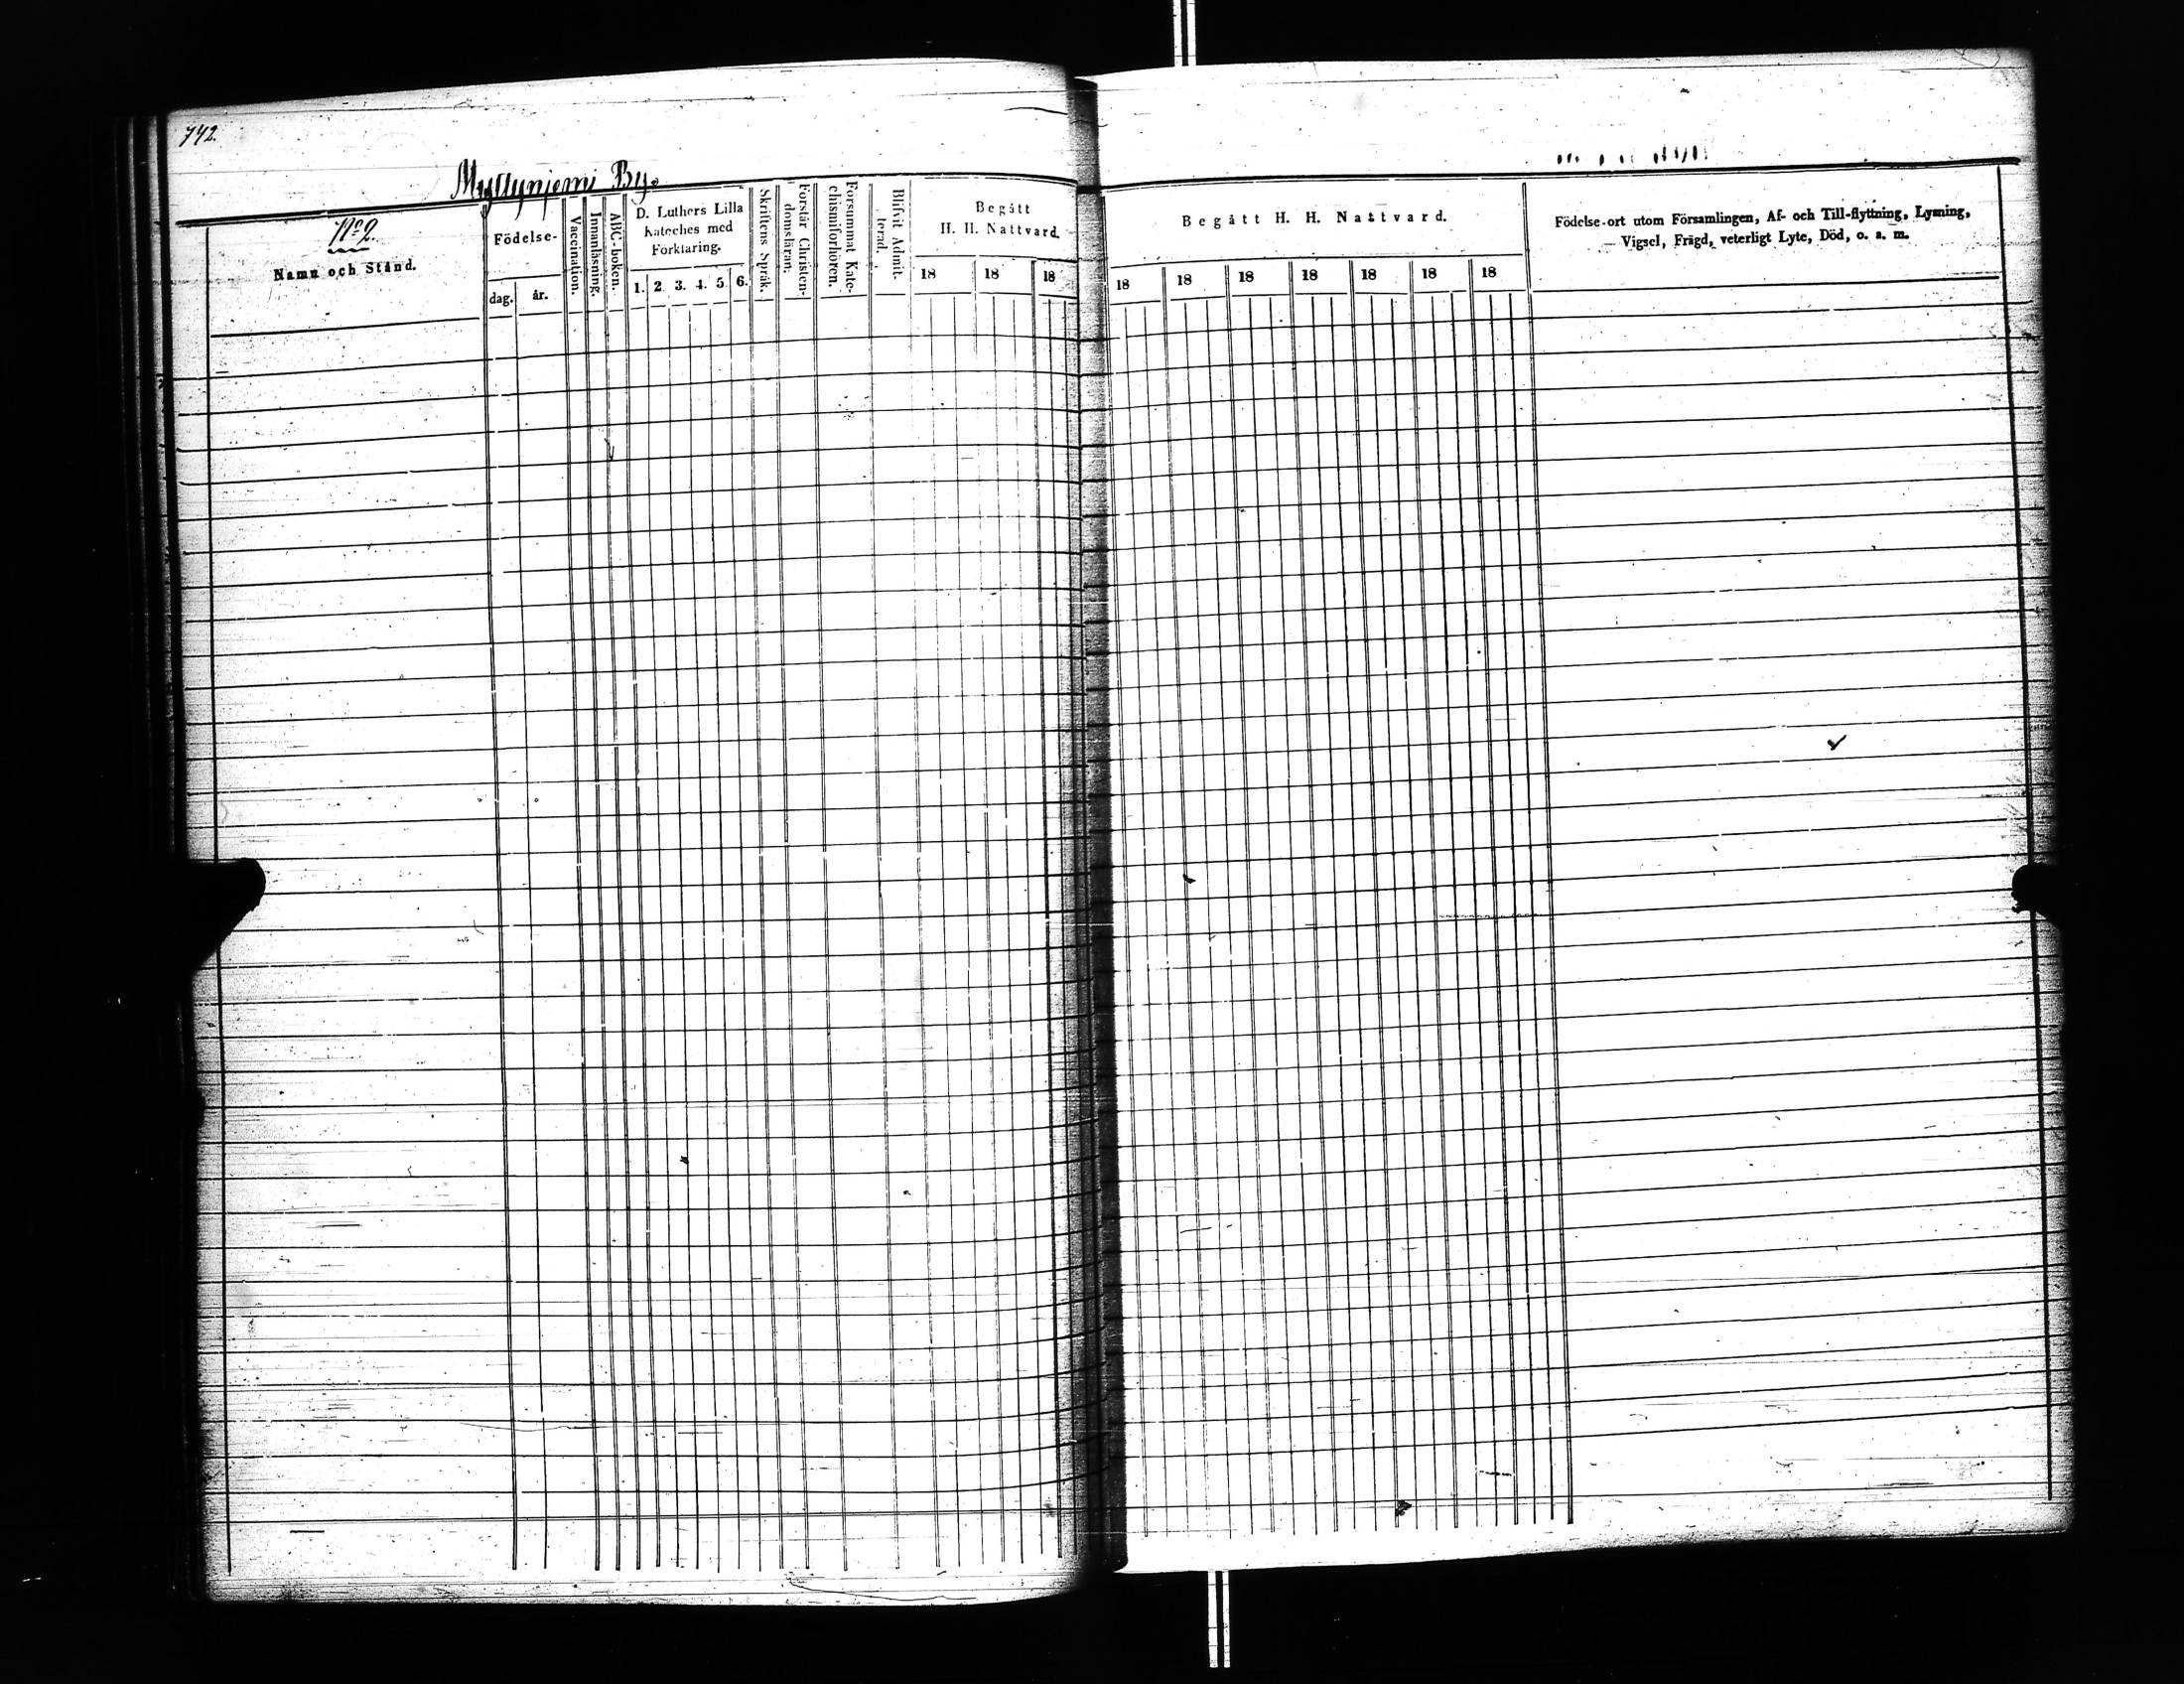 742.
Myllynjemi By.
No 2.
Namn och Stånd.
Födelse-
dag.
år.
Vaccination.
Innanläsning.
ABC-boken.
D. Luthers Lilla
Kateches med
Förklaring.
1. 2. 3. 4. 5. 6.
Skriftens Språk.
Förstår Christen-
domsläran.
Försummat Kate-
chismiförhören.
Blifvit Admit-
terad.
Begått
H. H. Nattvard.
18 18 18
Begått H. H. Nattvard.
18 18 18 18 18 18 18
Födelse-ort utom Församlingen, Af- och Till-flyttning, Lysning,
Vigsel, Frägd, veterligt Lyte, Död, o. s. m.